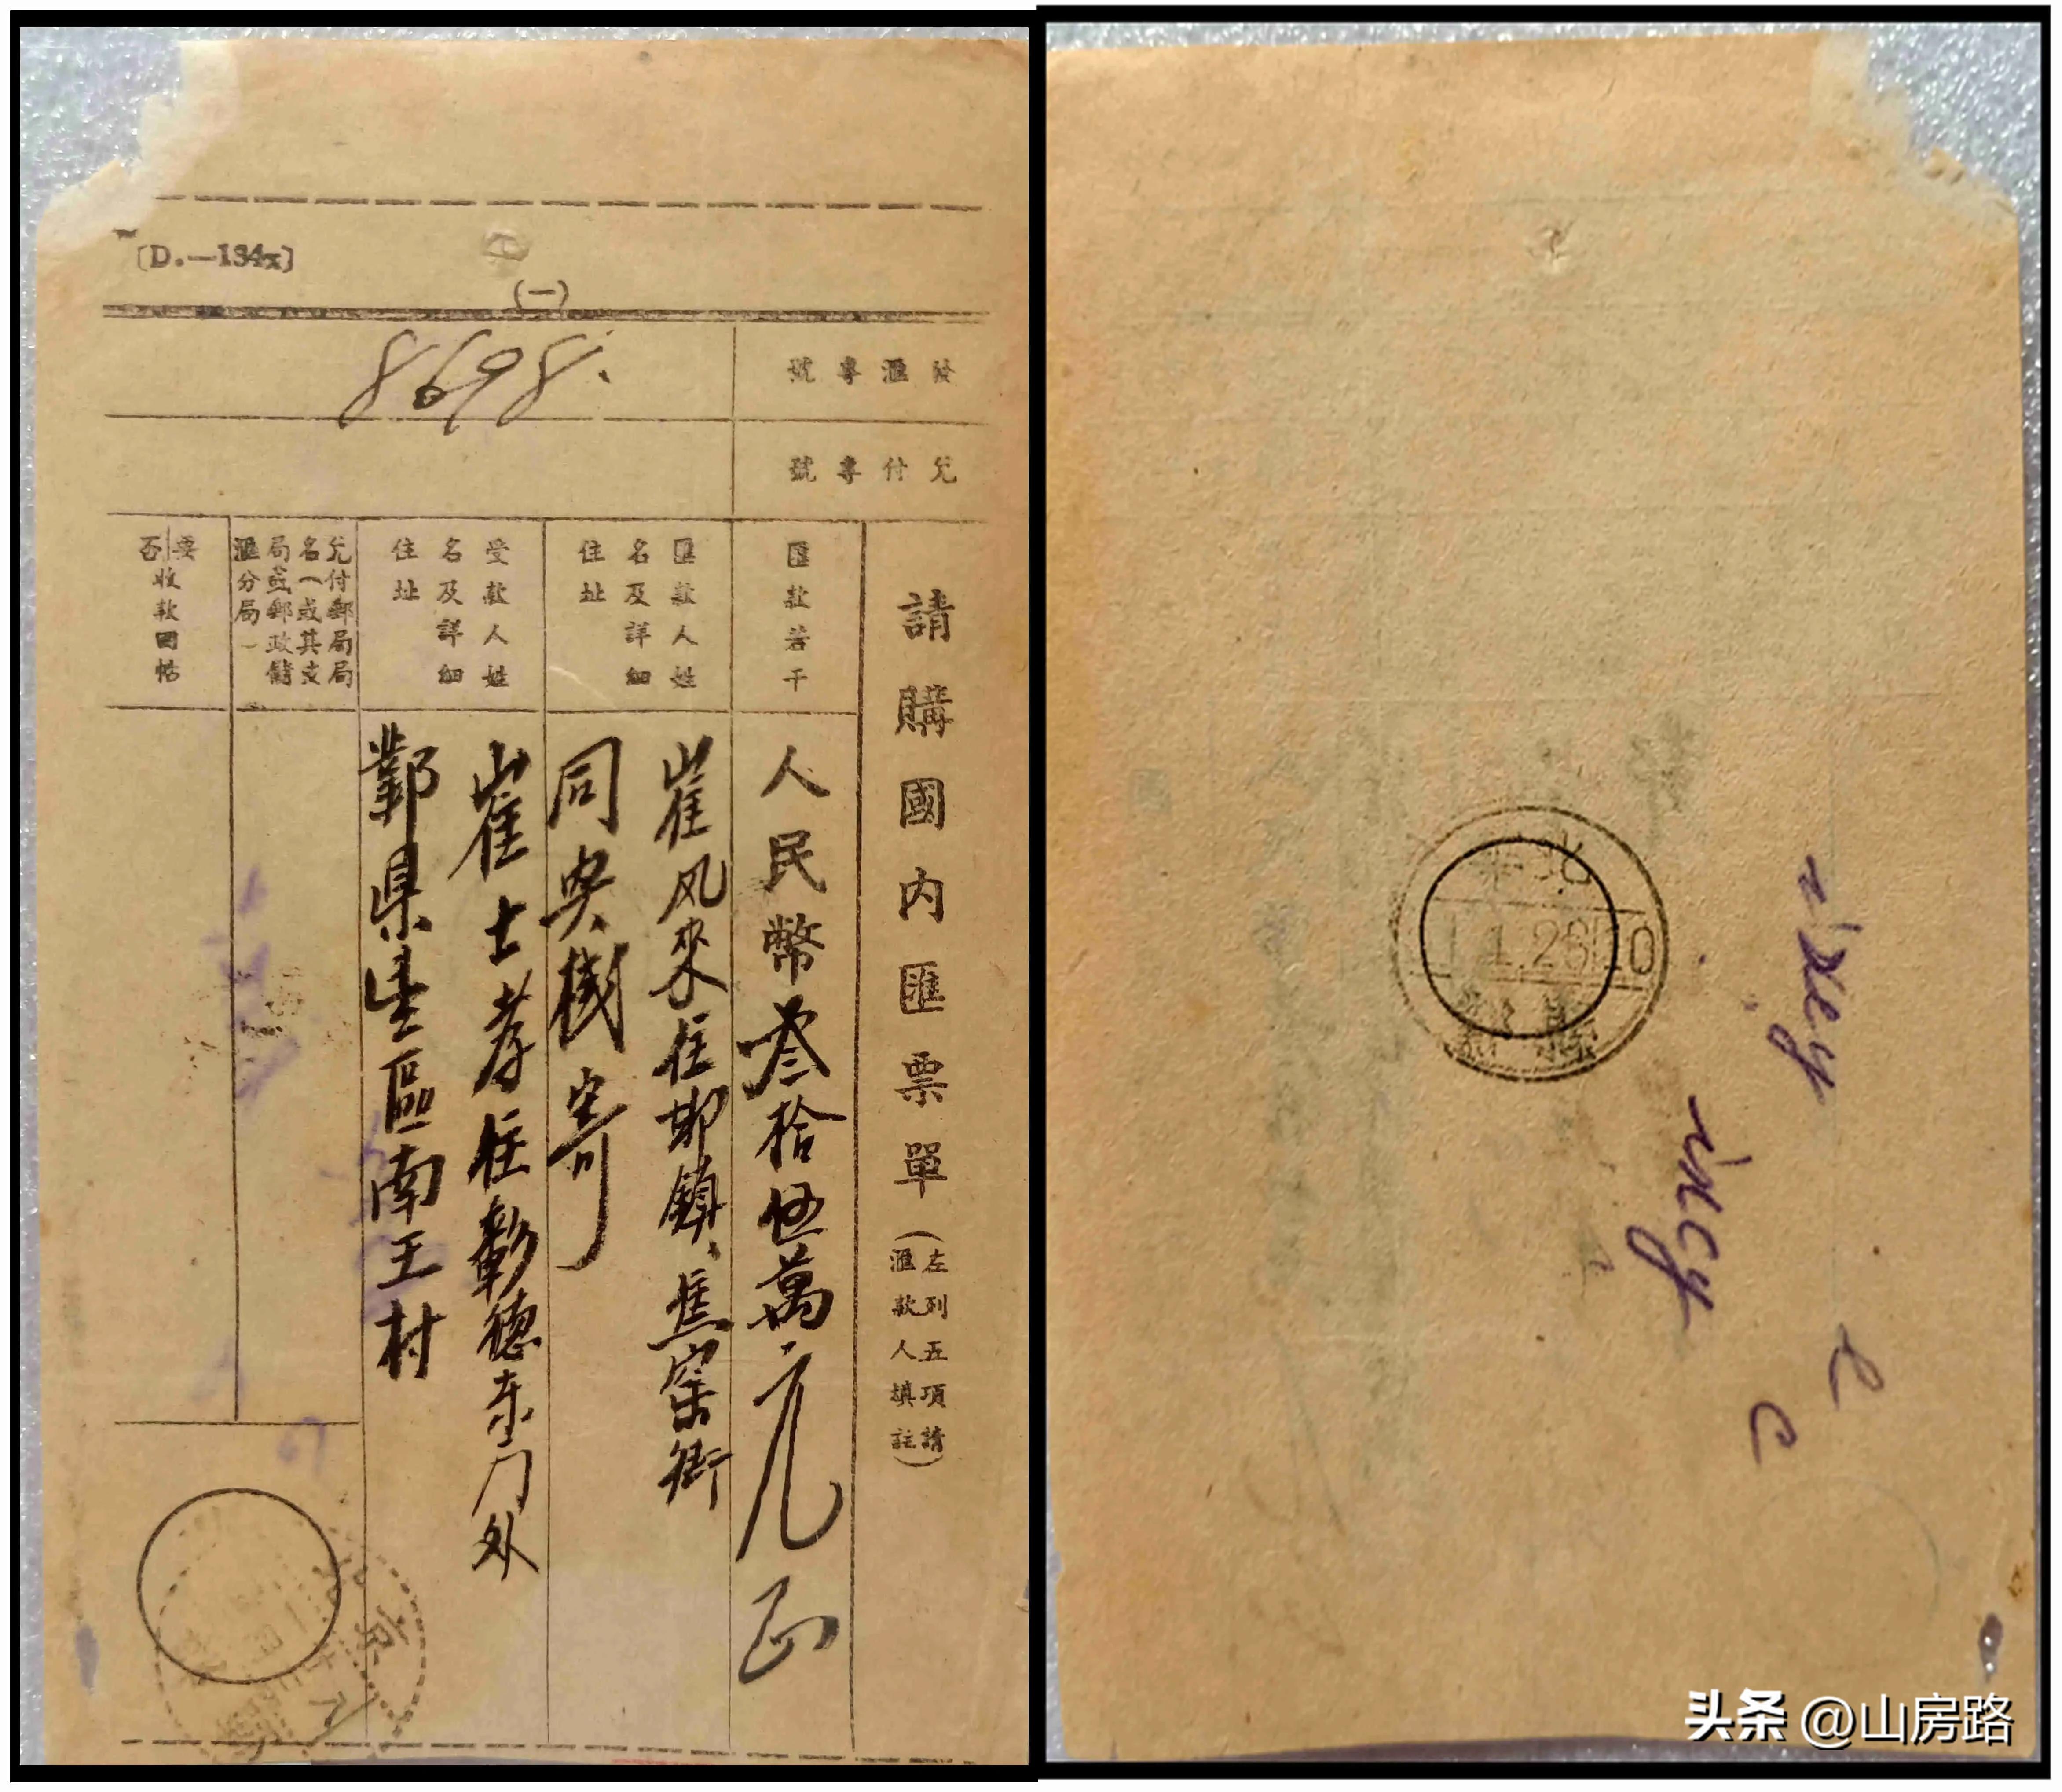 [D.—134x]
(一)
發匯專號
8698.
兌付專號
請購國内匯票單
(左列五項請
匯款人填註)
匯款若干
人民幣叁拾伍萬元正
匯款人姓
名及詳細
住址
崔风來住邯鎮、焦窯街
同寄
受款人姓
名及詳細
住址
崔士孝住彰德东门外
鄴県區南王村
兌付郵局局
名(或其支
局或郵政儲
匯分局)
要否收款回帖
京
北
鄴縣
头条 @山房路